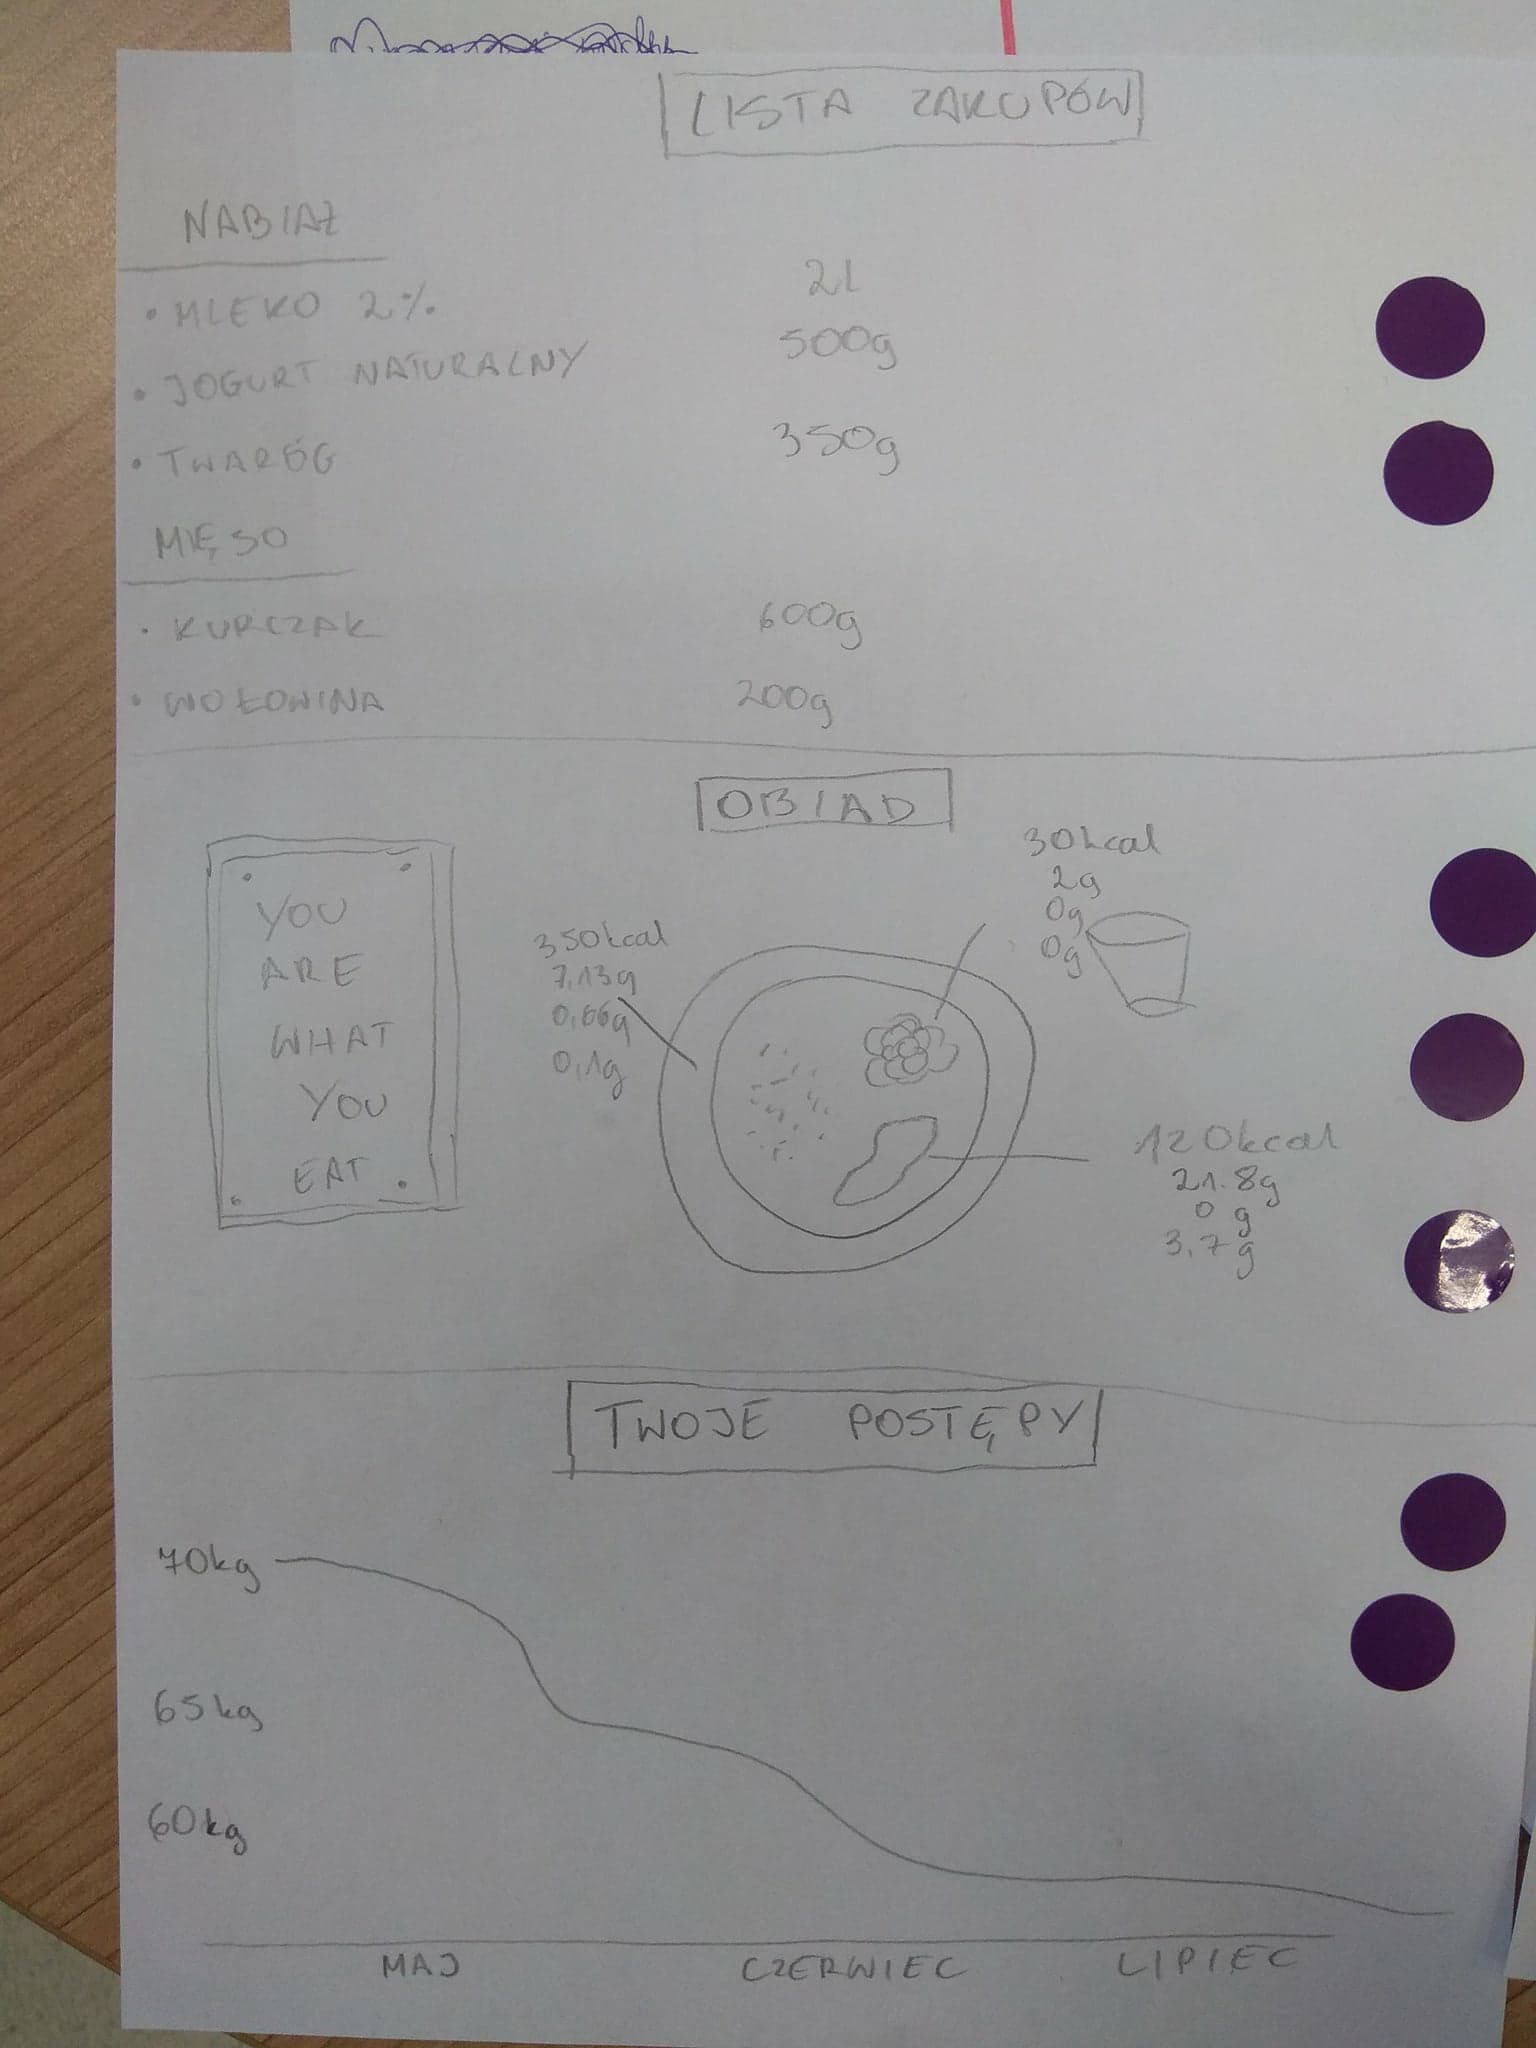 LISTA ZAKUPÓW
NABIAŁ
• MLEKO 2% 2l
• JOGURT NATURALNY 500g
• TWARÓG 350g
MIĘSO
• KURCZAK 600g
• WOŁOWINA 200g
OBIAD
YOU
ARE
WHAT
YOU
EAT
350kcal
7,13g
0,66g
0,1g
30kcal
2g
0g
0g
120kcal
21.8g
0 g
3,7g
TWOJE POSTĘPY
70kg
65kg
60kg
MAJ CZERWIEC LIPIEC